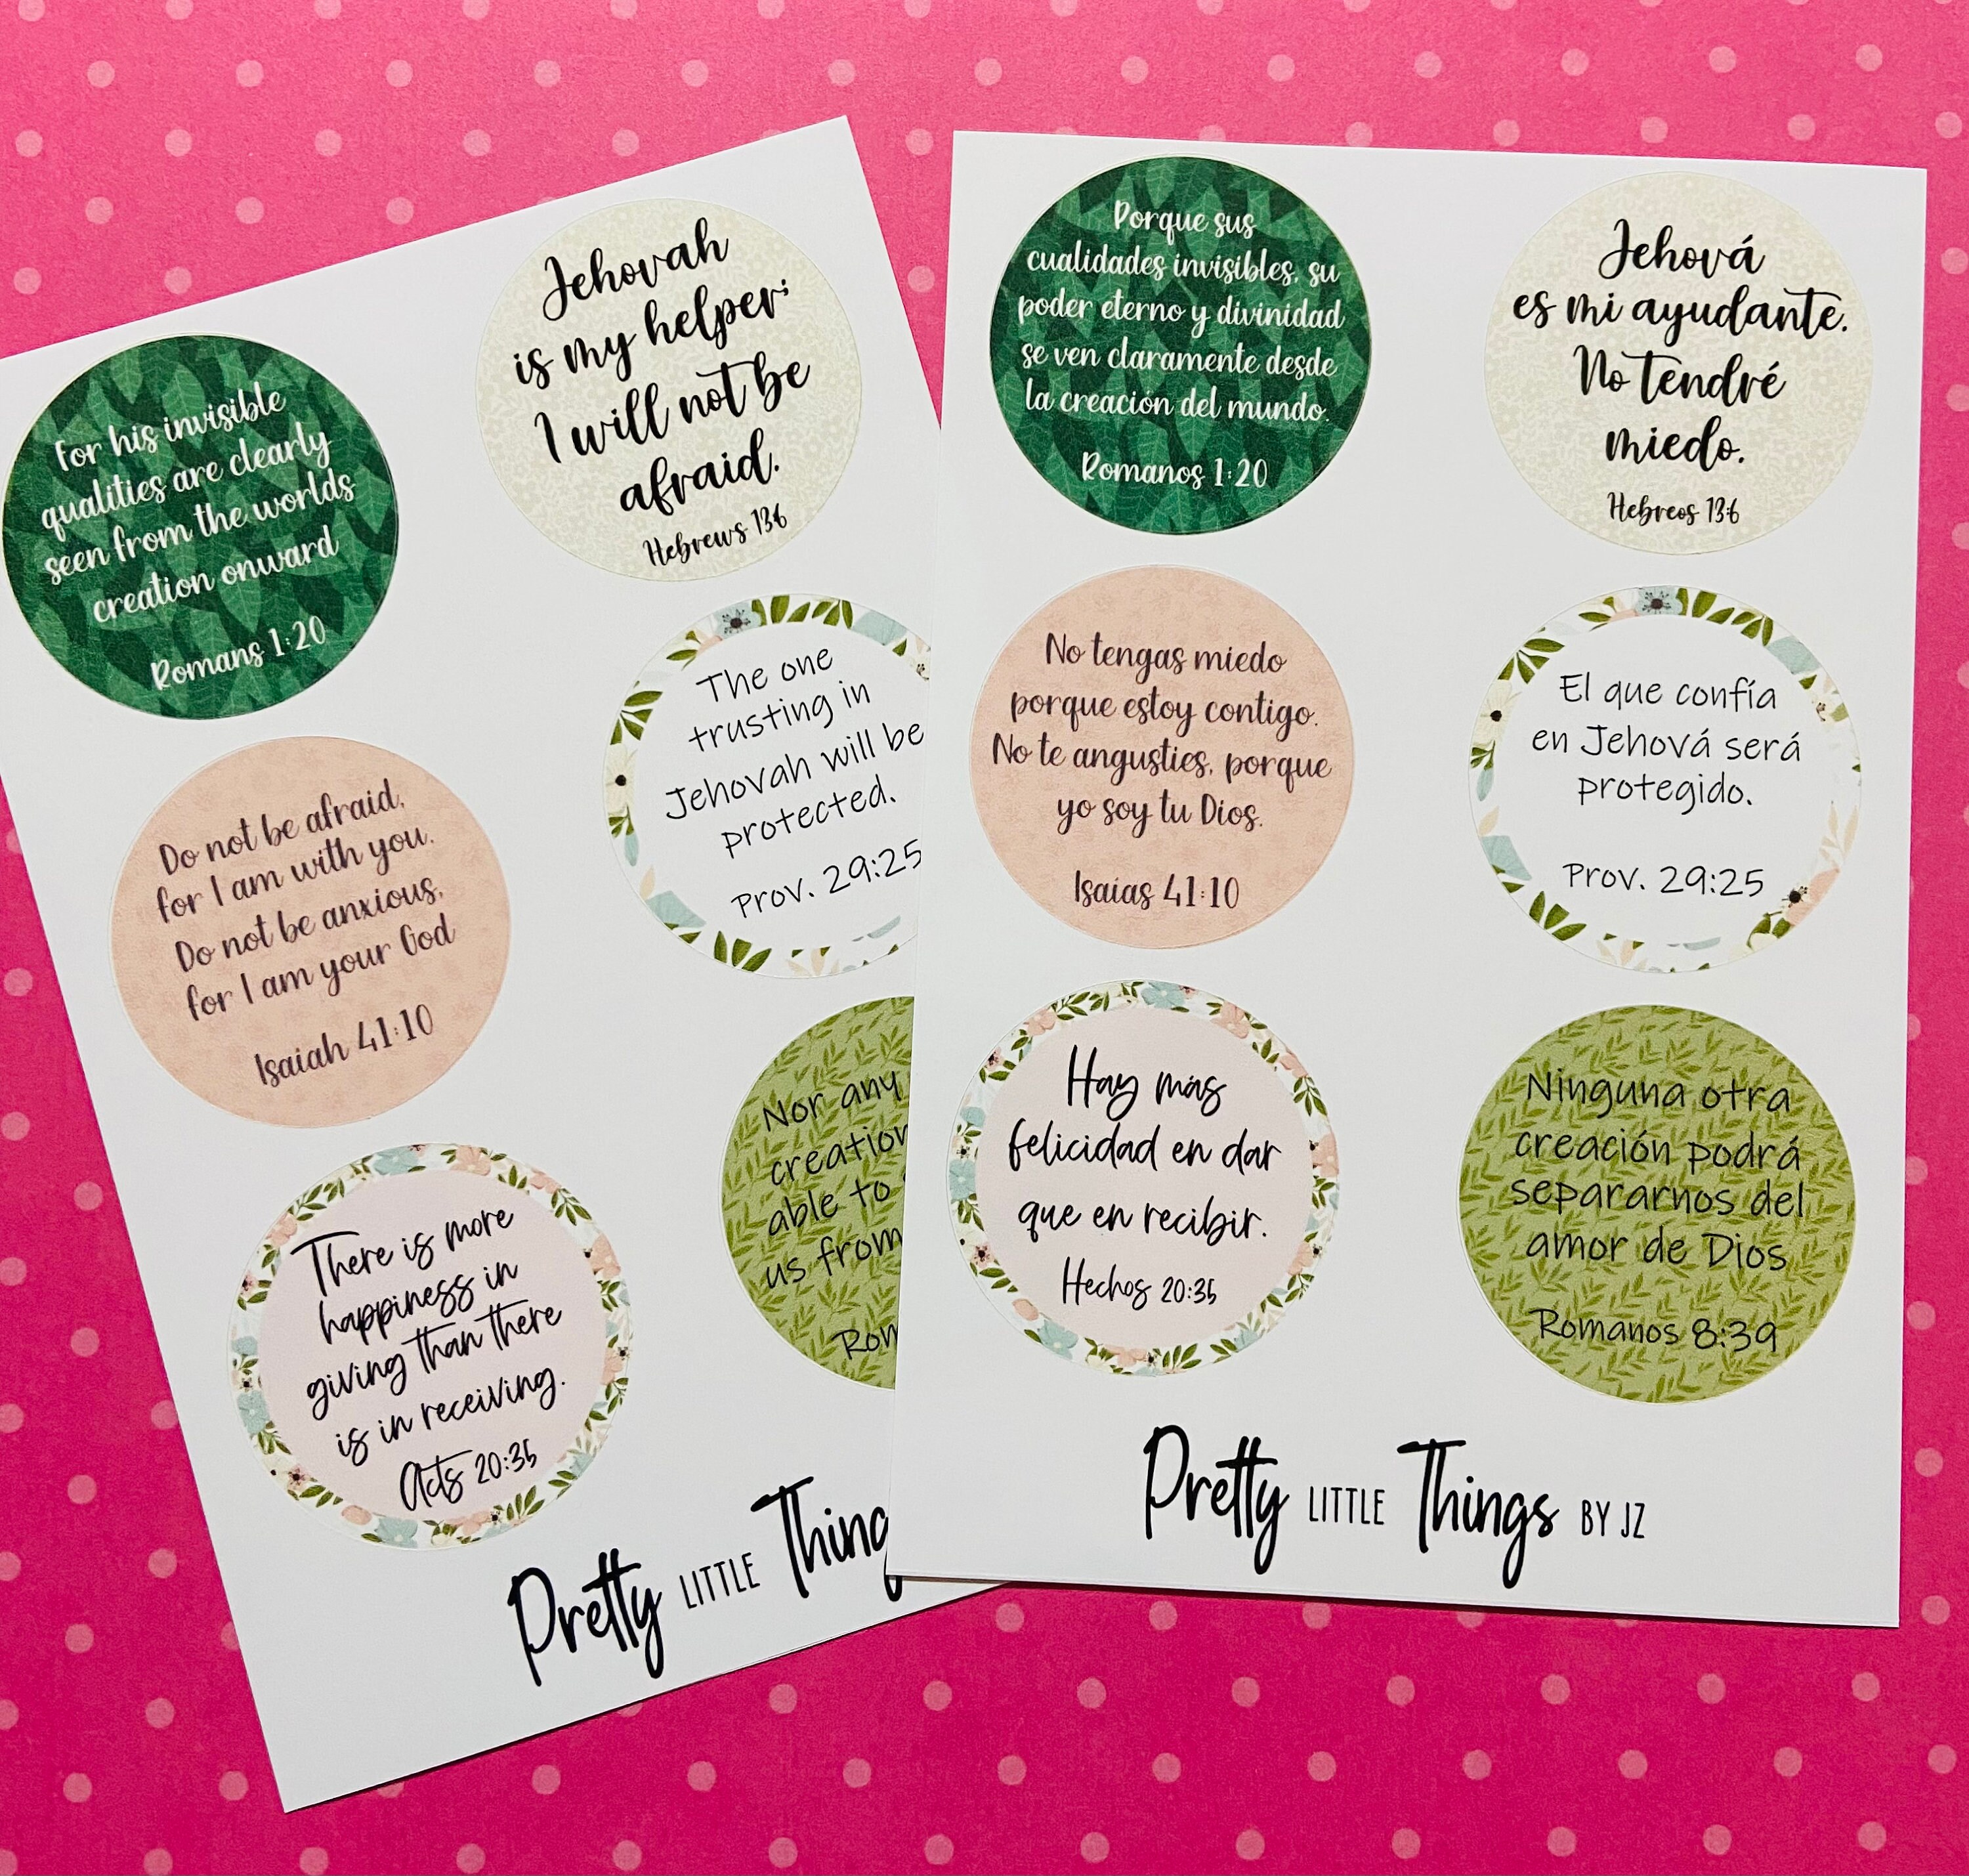 For his invisible
qualities are clearly
seen from the worlds
creation onward
Romans 1:20
Jehovah
is my helper;
I will not be
afraid.
Hebrews 13:6
Do not be afraid,
for I am with you.
Do not be anxious,
for I am your God
Isaiah 41:10
The one
trusting in
Jehovah will be
protected.
Prov. 29:25
There is more
happiness in
giving than there
is in receiving.
Acts 20:35
Nor any
creation
able to
us from
Rom
Pretty LITTLE Thing
Porque sus
cualidades invisibles, su
poder eterno y divinidad
se ven claramente desde
la creación del mundo.
Romanos 1:20
Jehová
es mi ayudante.
No tendré
miedo.
Hebreos 13:6
No tengas miedo
porque estoy contigo.
No te angusties, porque
yo soy tu Dios.
Isaías 41:10
El que confía
en Jehová será
protegido.
Prov. 29:25
Hay más
felicidad en dar
que en recibir.
Hechos 20:35
Ninguna otra
creación podrá
separarnos del
amor de Dios
Romanos 8:39
Pretty LITTLE Things BY JZ